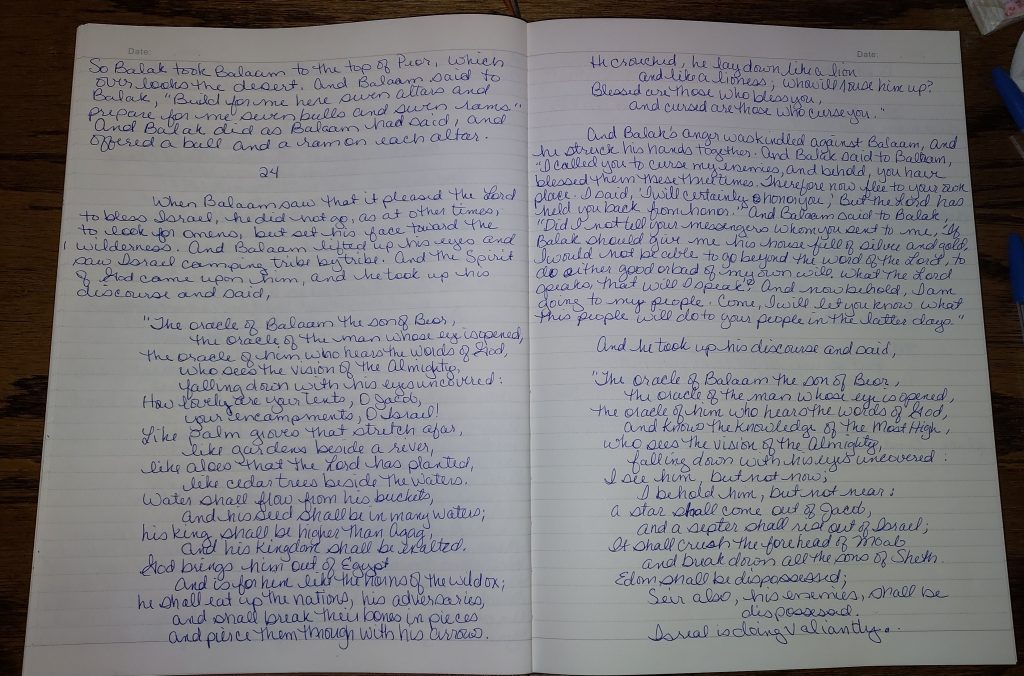 Date:
So Balak took Balaam to the top of Peor, which
overlooks the desert. And Balaam said to
Balak, "Build for me here seven altars and
prepare for me seven bulls and seven rams."
And Balak did as Balaam had said, and
offered a bull and a ram on each altar.
24
When Balaam saw that it pleased the Lord
to bless Israel, he did not go, as at other times,
to look for omens, but set his face toward the
wilderness. And Balaam lifted up his eyes and
saw Israel camping tribe by tribe. And the Spirit
of God came upon him, and he took up his
discourse and said,
"The oracle of Balaam the son of Beor,
the oracle of the man whose eye is opened,
the oracle of him who hears the words of God,
who sees the vision of the Almighty,
falling down with his eyes uncovered:
How lovely are your tents, O Jacob,
your encampments, O Israel!
Like palm groves that stretch afar,
like gardens beside a river,
like aloes that the Lord has planted,
like cedar trees beside the waters.
Water shall flow from his buckets,
and his seed shall be in many waters;
his king shall be higher than Agag,
and his kingdom shall be exalted.
God brings him out of Egypt
and is for him like the horns of the wild ox;
he shall eat up the nations, his adversaries,
and shall break their bones in pieces
and pierce them through with his arrows.
Date:
He crouched, he lay down like a lion
and like a lioness; who will rouse him up?
Blessed are those who bless you,
and cursed are those who curse you."
And Balak's anger was kindled against Balaam, and
he struck his hands together. And Balak said to Balaam,
"I called you to curse my enemies, and behold, you have
blessed them these three times. Therefore now flee to your own
place. I said, 'I will certainly honor you,' But the Lord has
held you back from honor." And Balaam said to Balak,
"Did I not tell your messengers whom you sent to me, 'If
Balak should give me his house full of silver and gold,
I would not be able to go beyond the word of the Lord, to
do either good or bad of my own will. What the Lord
speaks, that will I speak'? And now behold, I am
going to my people. Come, I will let you know what
this people will do to your people in the latter days."
And he took up his discourse and said,
"The oracle of Balaam the son of Beor,
the oracle of the man whose eye is opened,
the oracle of him who hears the words of God,
and knows the knowledge of the Most High,
who sees the vision of the Almighty,
falling down with his eyes uncovered:
I see him, but not now;
I behold him, but not near:
a star shall come out of Jacob,
and a septer shall rise out of Israel;
It shall crush the forehead of Moab
and break down all the sons of Sheth.
Edom shall be dispossessed;
Seir also, his enemies, shall be
dispossesed.
Isreal is doing valiantly.